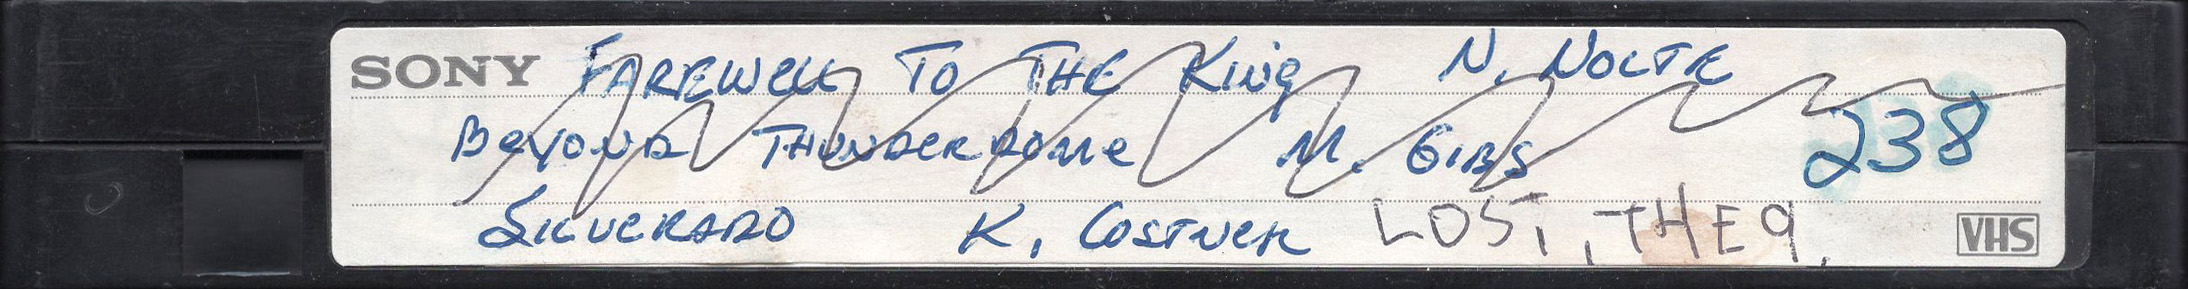 SONY FAREWELL TO THE KING N. NOLTE
BEYOND THUNDERDOME M. GIBS
238
SILVERADO K. COSTNER LOST, THE 9,
VHS